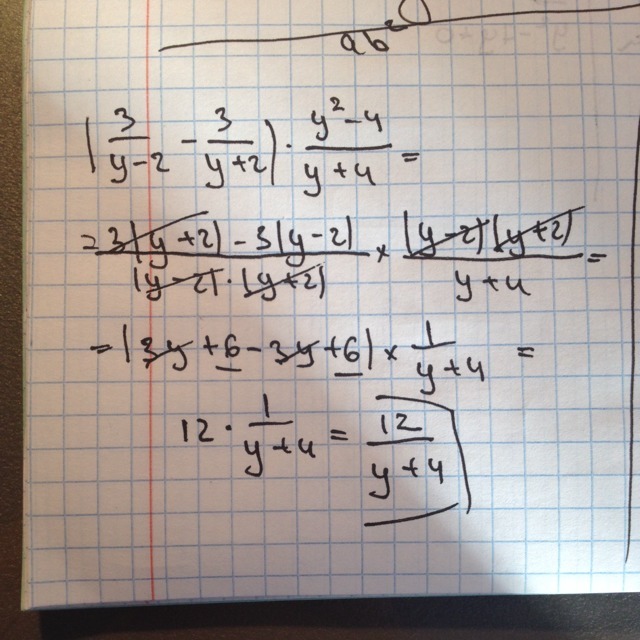 ab²
(3/(y-2) - 3/(y+2)) · (y²-4)/(y+4) =
= (3(y+2) - 3(y-2))/((y-2)·(y+2)) × ((y-2)(y+2))/(y+4) =
= (3y+6-3y+6) × 1/(y+4) =
12 · 1/(y+4) = 12/(y+4)